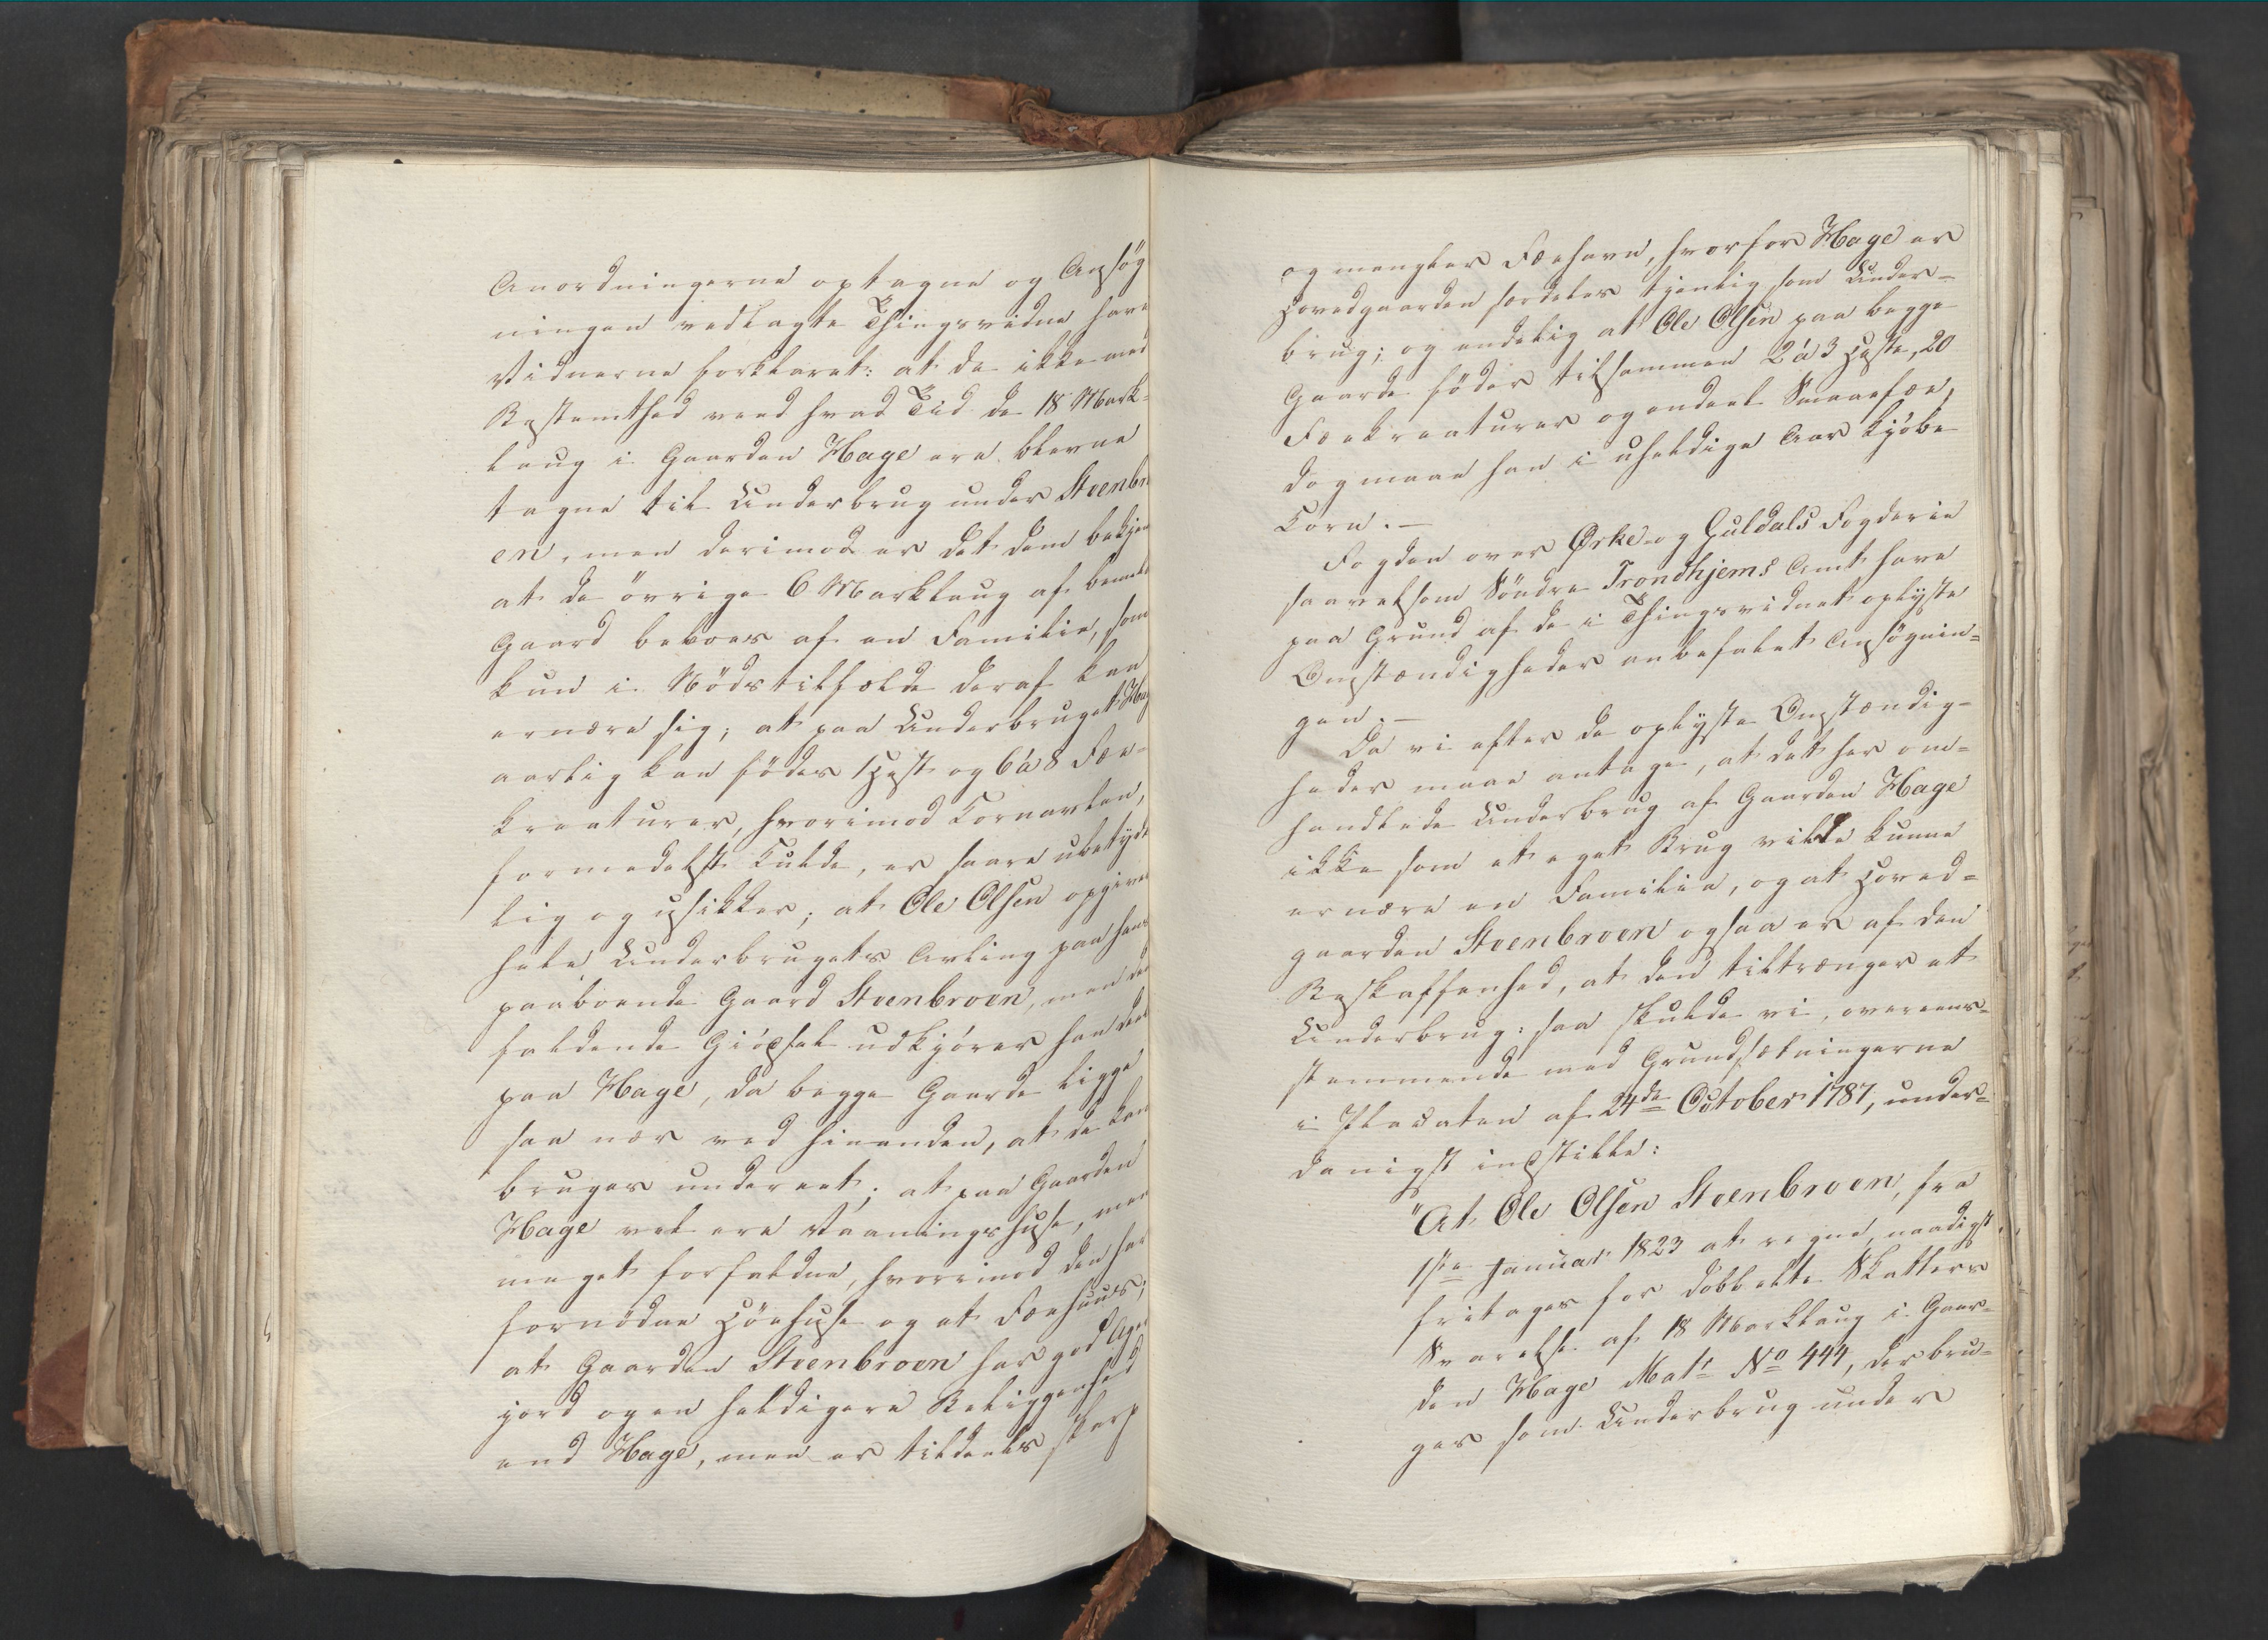 Anordningerne optagne og Ansøg
ningen vedlagte Thingsvidne have
Vidnerne forklaret: at de ikke med
Bestemthed veed hvad Tid de 18 Mark-
laug i Gaarden Hage ere blevne
tagne til Underbrug under Steenbr
en, men derimod er det dem bekjen
at de øvrige 6 Marklaug af bemeld
Gaard beboes af en Familie, som
kun i Nødstilfælde deraf kan
ernære sig; at paa Underbruget Hag
aarlig kan födes 1 Hest og 6 à 8 Fæe-
kreaturer, hvorimod Kornavlen,
formedelst Kulde, er saare ubetyde
lig og usikker; at Ole Olsen opgiver
hele Underbrugets Avling paa hans
paaboende Gaard Steenbroen, men den
faldende Giödsel udkjörer han deels
paa Hage, da begge Gaarde ligge
saa nær ved hinanden, at de kan
bruges undereet; at paa Gaarden
Hage vel ere Vaaningshuse, men
meget forfaldne, hvorimod den har
fornødne Høehuse og et Fæehuus;
at Gaarden Steenbroen har god Ager
jord og en heldigere Beliggenhed
end Hage, men er tildeels skarp
og mangler Fæehavn, hvorfor Hage er
Hovedgaarden særdeles tjenlig som Under-
brug; og endelig at Ole Olsen paa begge
Gaarde föder tilsammen 2 à 3 Heste, 20
Fæekreaturer og endeel Smaafæe,
dog maae han i uheldige Aar kjöbe
Korn. —
Fogden over Örke- og Guldals Fogderie
saavelsom Söndre Trondhjems Amt have
paa Grund af de i Thingsvidnet oplyste
Omstændigheder anbefalet Ansøgnin=
gen. —
Da vi efter de oplyste Omstændig-
heder maae antage, at det her om=
handlede Underbrug af Gaarden Hage
ikke som et eget Brug vilde kunne
ernære en Familie, og at Hoved=
gaarden Steenbroen ogsaa er af den
Beskaffenhed, at den tiltrænger et
Underbrug: saa skulde vi, overeens-
stemmende med Grundsætningerne
i Placaten af 24de October 1787, under=
danigst indstille:
"At Ole Olsen Steenbroen, fra
1ste Januar 1823 at regne, naadigst
fritages for dobbelte Skatters
Svarelse af 18 Marklaug i Gaar=
den Hage Matr No 444, der bru=
ges som Underbrug under